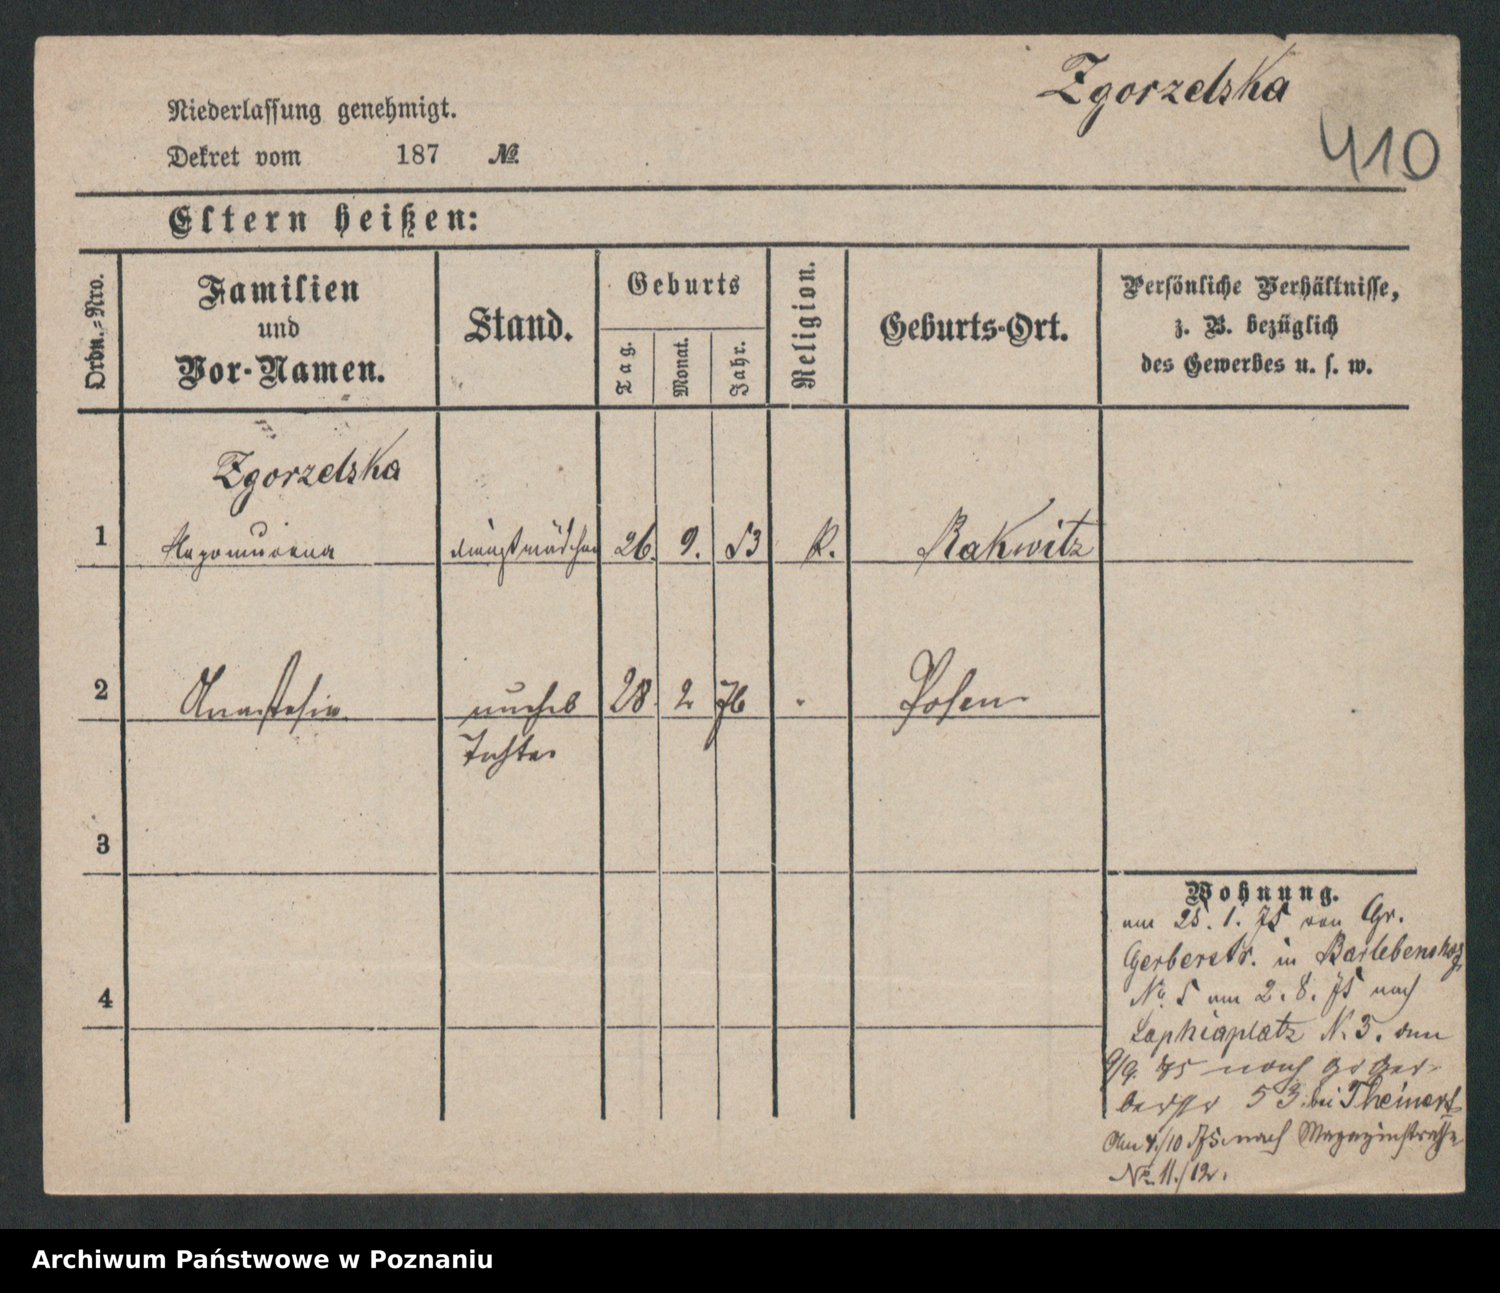 Zgorzelska
410
Niederlassung genehmigt.
Dekret vom 187 №
Eltern heißen:
Ordn.-Nro.
Familien
und
Vor-Namen.
Stand.
Geburts
Tag.
Monat.
Jahr.
Religion.
Geburts-Ort.
Persönliche Verhältnisse,
z. B. bezüglich
des Gewerbes u. s. w.
Zgorzelska
1 Nepomucena Dienstmädchen 26. 9. 53 k. Rakwitz
2 Anastasia unehel 28. 2 76 " Posen
Tochter
3
4
Wohnung.
am 25. 1. 75 von Gr.
Gerberstr. in Barlebenshog
No. 5 am 2. 8. 75 nach
Sophiaplatz N. 3. den
9/9. 75 nach gr Ger-
berstr 53 bei Theinert
Am 4./10 75. nach Magazinstraße
No 11./12.
Archiwum Państwowe w Poznaniu